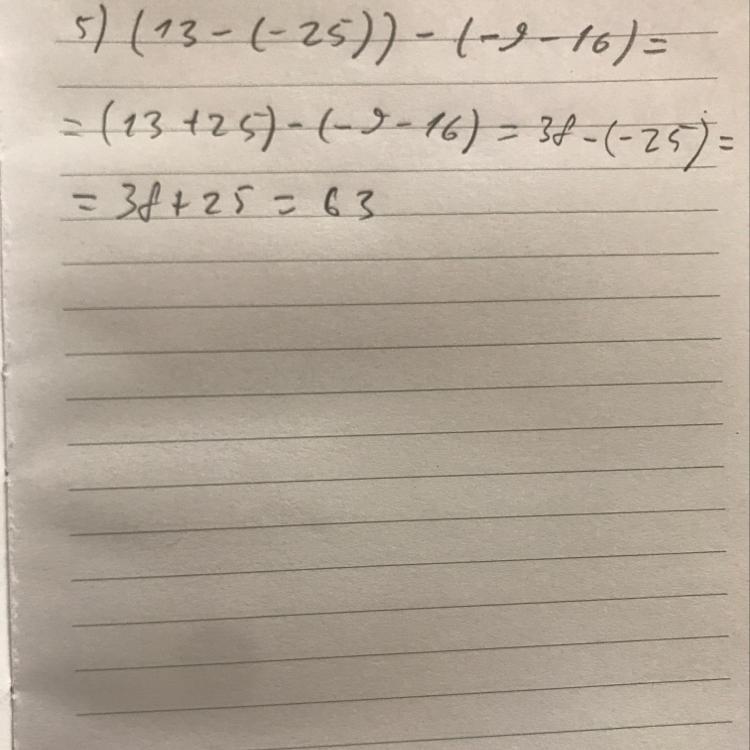 5) (13 - (-25)) - (-9 - 16) =
= (13 + 25) - (-9 - 16) = 38 - (-25) =
= 38 + 25 = 63